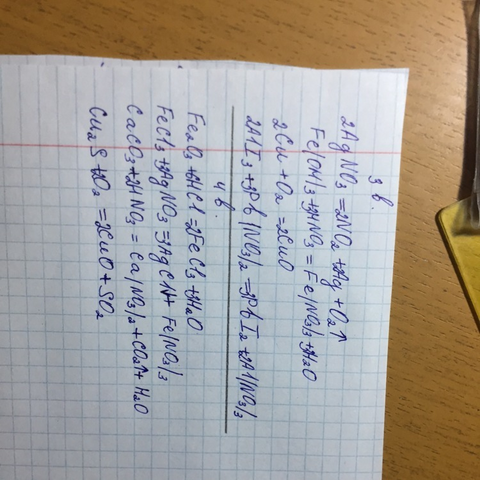 3 в.
2AgNO₃ = 2NO₂ + 2Ag + O₂↑
Fe(OH)₃ + 3HNO₃ = Fe(NO₃)₃ + 3H₂O
2Cu + O₂ = 2CuO
2AlI₃ + 3Pb(NO₃)₂ = 3PbI₂ + 2Al(NO₃)₃
4 в.
Fe₂O₃ + 6HCl = 2FeCl₃ + 3H₂O
FeCl₃ + 3AgNO₃ = 3AgCl↓ + Fe(NO₃)₃
CaCO₃ + 2HNO₃ = Ca(NO₃)₂ + CO₂↑ + H₂O
Cu₂S + 2O₂ = 2CuO + SO₂